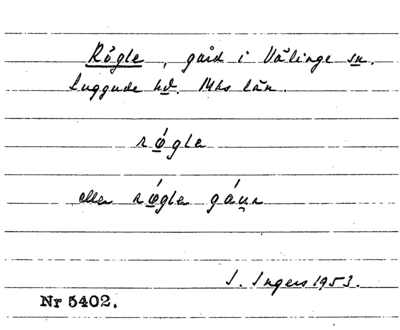 Rögle, gård i Välinge sn.
Luggude hd. Mhs län.
rǿ̱gle
eller rǿ̱gle gáu̯r
I. Ingers 1953.
Nr 5402.